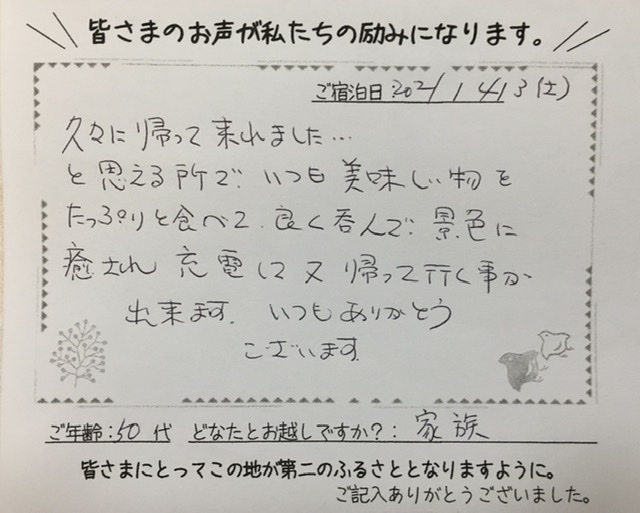 皆さまのお声が私たちの励みになります。
ご宿泊日:2021/4/3(土)
久々に帰って来れました…
と思える所で いつも美味しい物を
たっぷりと食べて、良く呑んで 景色に
癒され 充電して又帰って行く事が
出来ます。いつもありがとう
ございます。
ご年齢:50代 どなたとお越しですか?:家族
皆さまにとってこの地が第二のふるさととなりますように。
ご記入ありがとうございました。